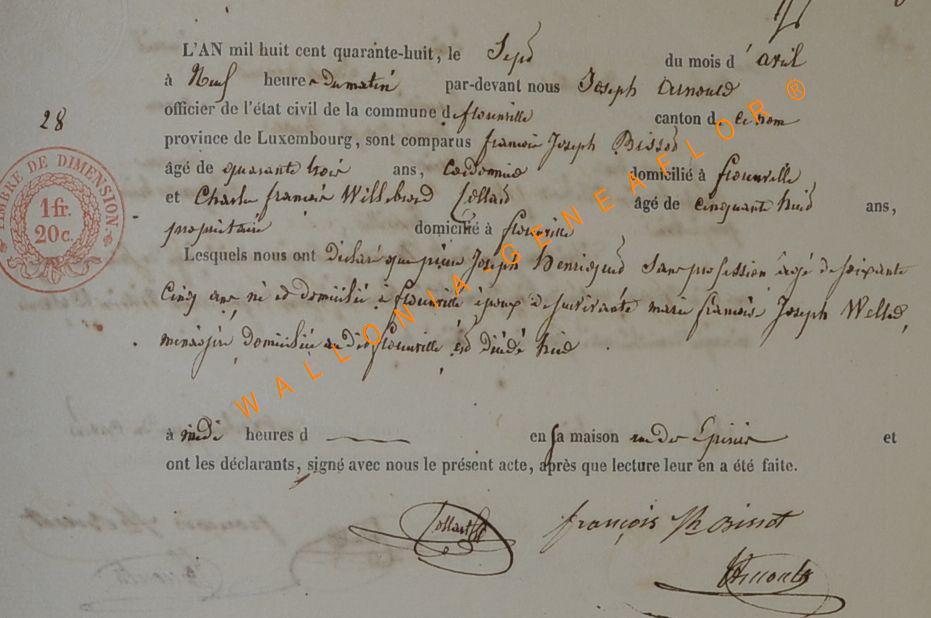 L'AN mil huit cent quarante-huit, le Sept du mois d'avril
à Neuf heures du matin par-devant nous Joseph Arnould
officier de l'état civil de la commune de florenville canton d. ce nom
28
province de Luxembourg, sont comparus francois Joseph Bissot
TIMBRE DE DIMENSION.
1 fr. 20 c.
âgé de quarante trois ans, cordonnier domicilié à florenville
et Charles francois Willebrord Collard âgé de cinquante huit ans,
propriétaire domicilié à florenville
Lesquels nous ont déclaré que pierre Joseph Henriquet sans profession agé de soixante
cinq ans né et domicilié à florenville époux de survivante marie francoise Joseph
ménagère domiciliée au dit florenville est décédé
à midi heures d en sa maison rue des Epinis et
ont les déclarants, signé avec nous le présent acte, après que lecture leur en a été faite.
Collart
françois Jh Bissot
Arnould
WALLONIA GENEAFLOR ®